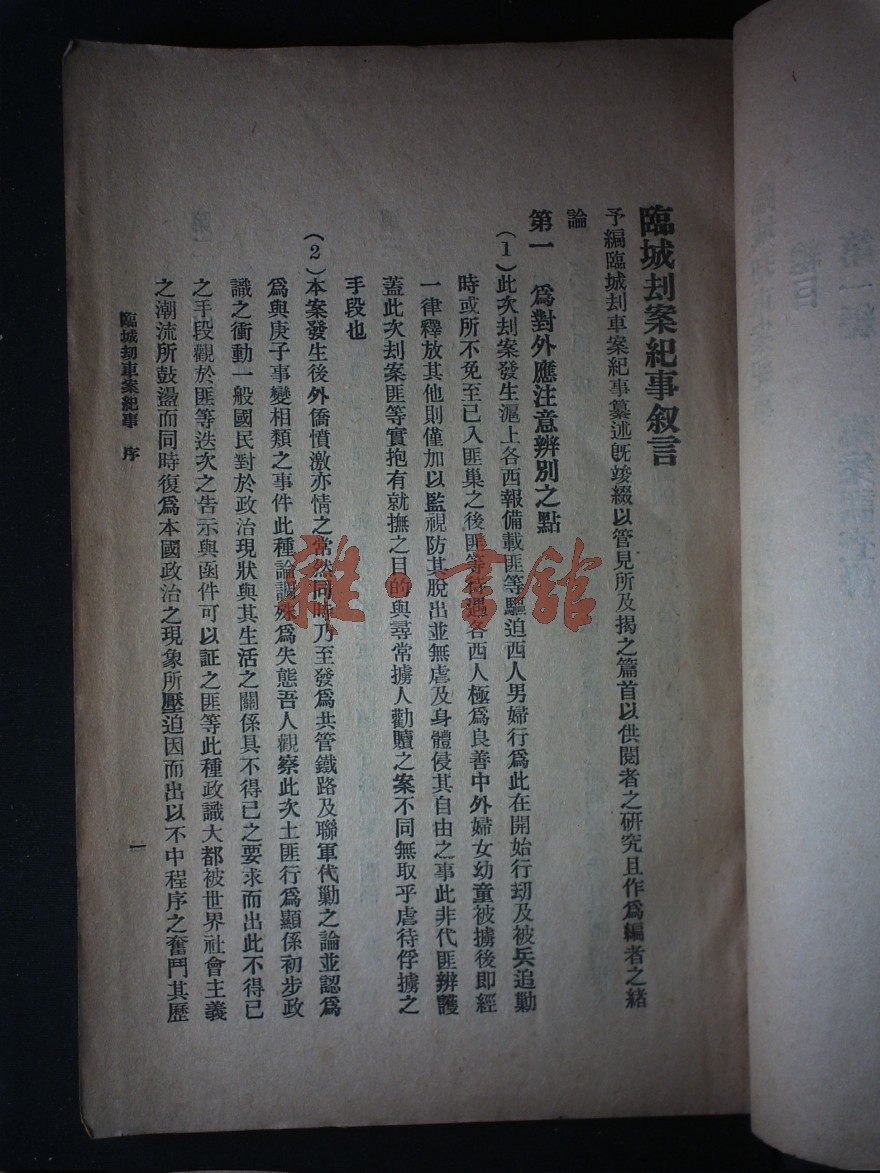 臨城刦案紀事叙言
予編臨城刦車案紀事纂述既竣綴以管見所及揭之篇首以供閱者之研究且作爲編者之緒
論
第一　爲對外應注意辨別之點
(1)此次刦案發生滬上各西報備載匪等驅迫西人男婦行爲此在開始行刼及被兵追勦
時或所不免至已入匪巢之後匪等待遇各西人極爲良善中外婦女幼童被擄後即經
一律釋放其他則僅加以監視防其脫出並無虐及身體侵其自由之事此非代匪辨護
蓋此次刦案匪等實抱有就撫之目的與尋常擄人勸贖之案不同無取乎虐待俘擄之
手段也
(2)本案發生後外僑憤激亦情之當然同時乃至發爲共管鐵路及聯軍代勦之論並認爲
爲與庚子事變相類之事件此種論調殊爲失態吾人觀察此次土匪行爲顯係初步政
識之衝動一般國民對於政治現狀與其生活之關係具不得已之要求而出此不得已
之手段觀於匪等迭次之告示與函件可以証之匪等此種政識大都被世界社會主義
之潮流所鼓盪而同時復爲本國政治之現象所壓迫因而出以不中程序之奮鬥其歷
臨城刼車案紀事　序
一
雜·書館
總目
第一編